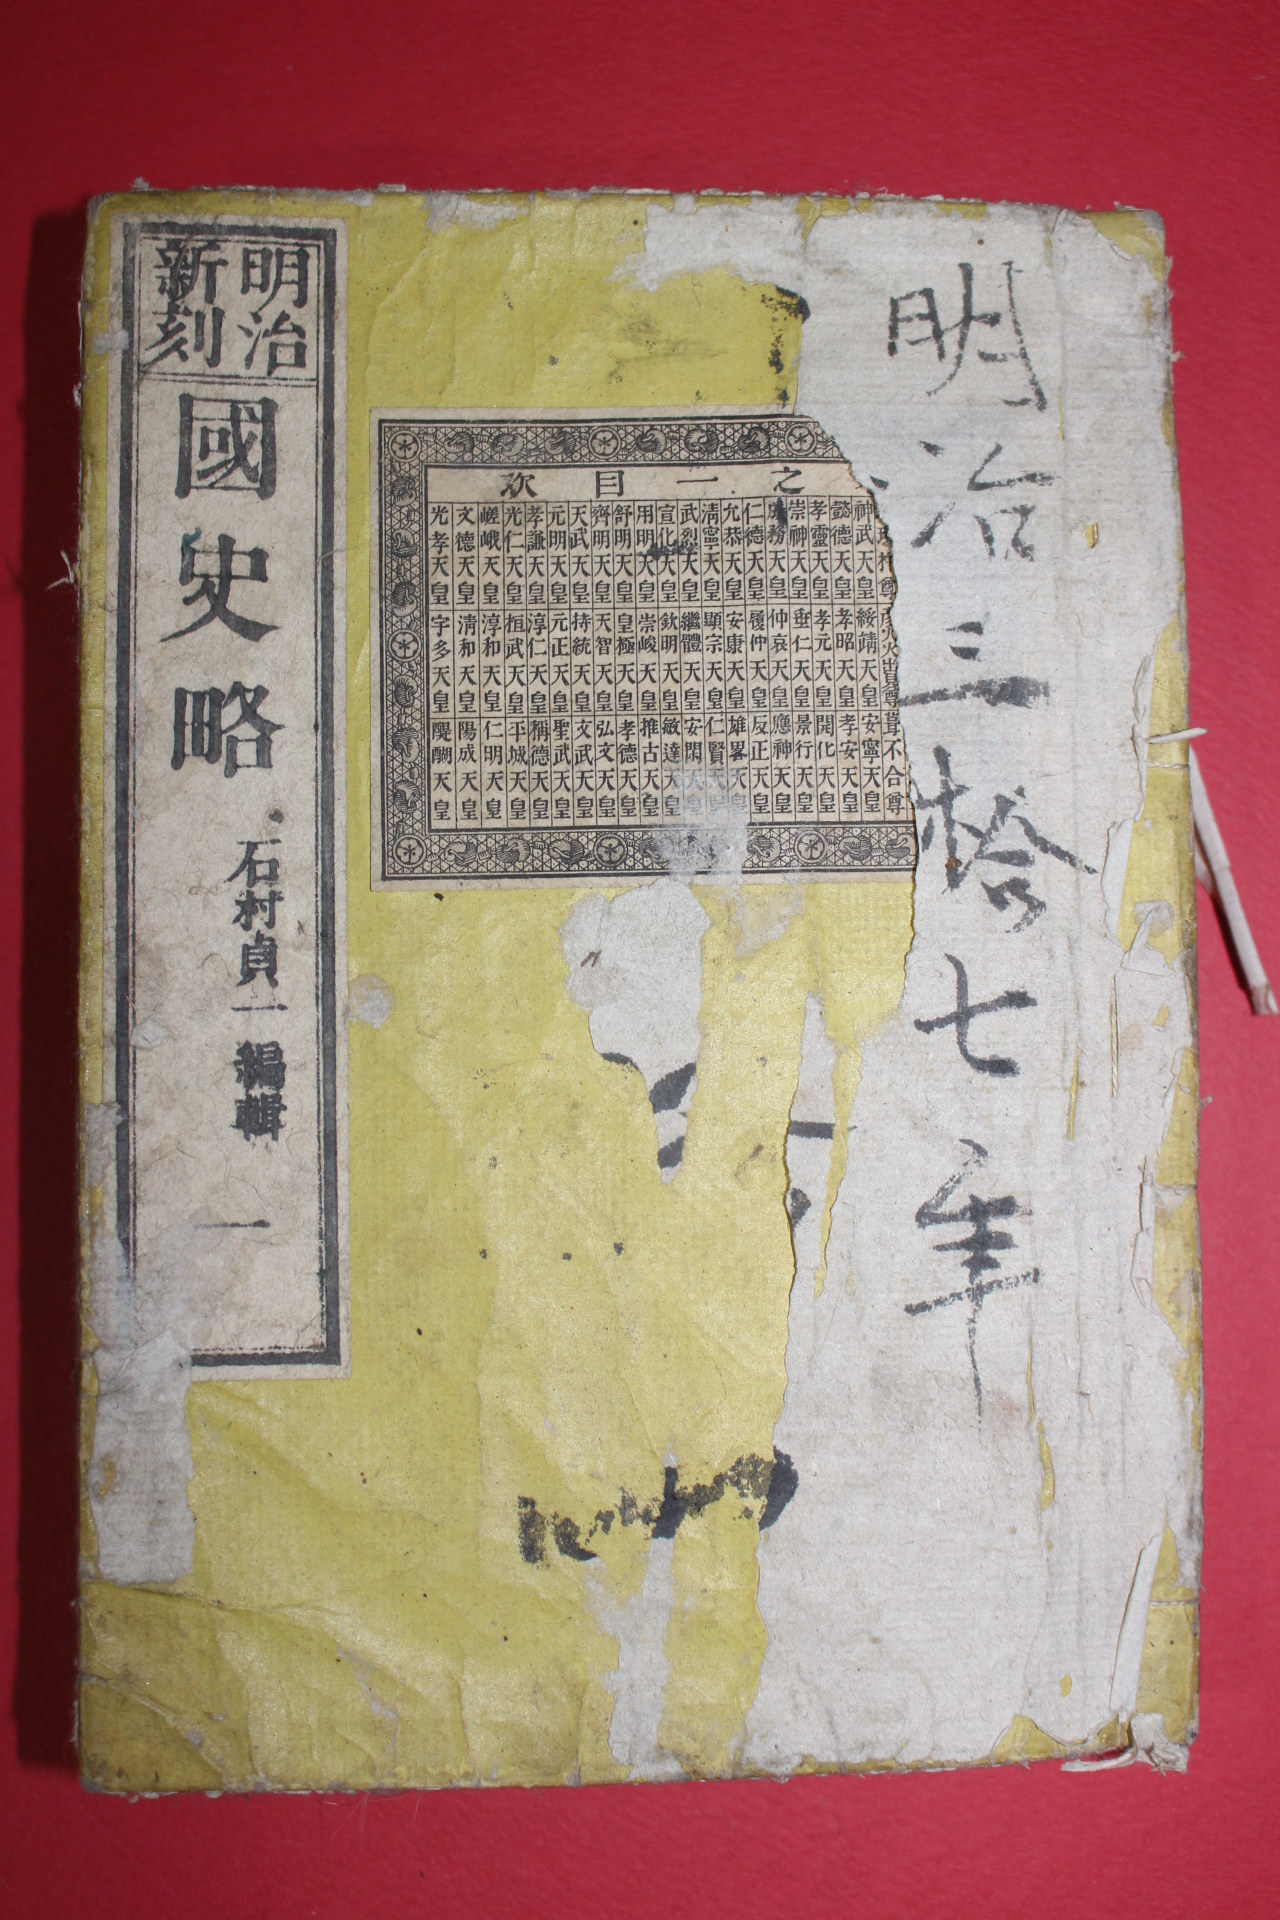 明治三拾七年
之一目次
杵尊 火出見尊 葺不合尊
神武天皇 綏靖天皇 安寧天皇
懿德天皇 孝昭天皇 孝安天皇
孝靈天皇 孝元天皇 開化天皇
崇神天皇 垂仁天皇 景行天皇
成務天皇 仲哀天皇 應神天皇
仁德天皇 履仲天皇 反正天皇
允恭天皇 安康天皇 雄畧天皇
淸寧天皇 顯宗天皇 仁賢天皇
武烈天皇 繼體天皇 安閑天皇
宣化天皇 欽明天皇 敏達天皇
用明天皇 崇峻天皇 推古天皇
舒明天皇 皇極天皇 孝德天皇
齊明天皇 天智天皇 弘文天皇
天武天皇 持統天皇 文武天皇
元明天皇 元正天皇 聖武天皇
孝謙天皇 淳仁天皇 稱德天皇
光仁天皇 桓武天皇 平城天皇
嵯峨天皇 淳和天皇 仁明天皇
文德天皇 淸和天皇 陽成天皇
光孝天皇 宇多天皇 醍醐天皇
明治
新刻
國史略
石村貞一編輯
一